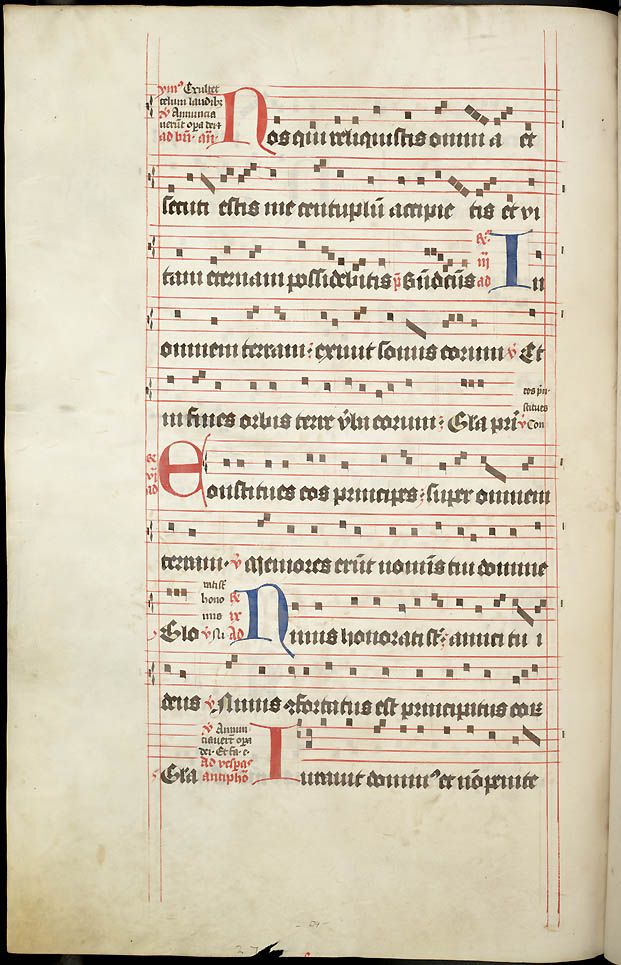 ymꝰ Exultet
celum laudibꝫ
℣ Annuncia
verūt opa dei
ad bn̄. an̄.
Nos qui reliquistis omnia et
secuti estis me centuplū accipie tis et vi
tam eternam possidebitis p̄ Bn̄dictus ad iii In
omnem terram : exivit sonus eorum ℣ Et
in fines orbis terre v̄ba eorum : Gla pri ℣ Con
stitues
eos prin
ad vi Constitues eos principes : super omnem
terram . ℣ Memores erūt nominis tui domine
Glo ℣ Ni
mis
hono
rati st̄
ad ix Nimis honorati st̄ : amici tu i
deus ℣ Nimis ꝯfortatus est principatus eoꝝ
Gla
℣ Annun
ciaverūt opa
dei. Et fa. e.
Ad vesperas
antiphō
Iuravit dominꝰ et nō penite